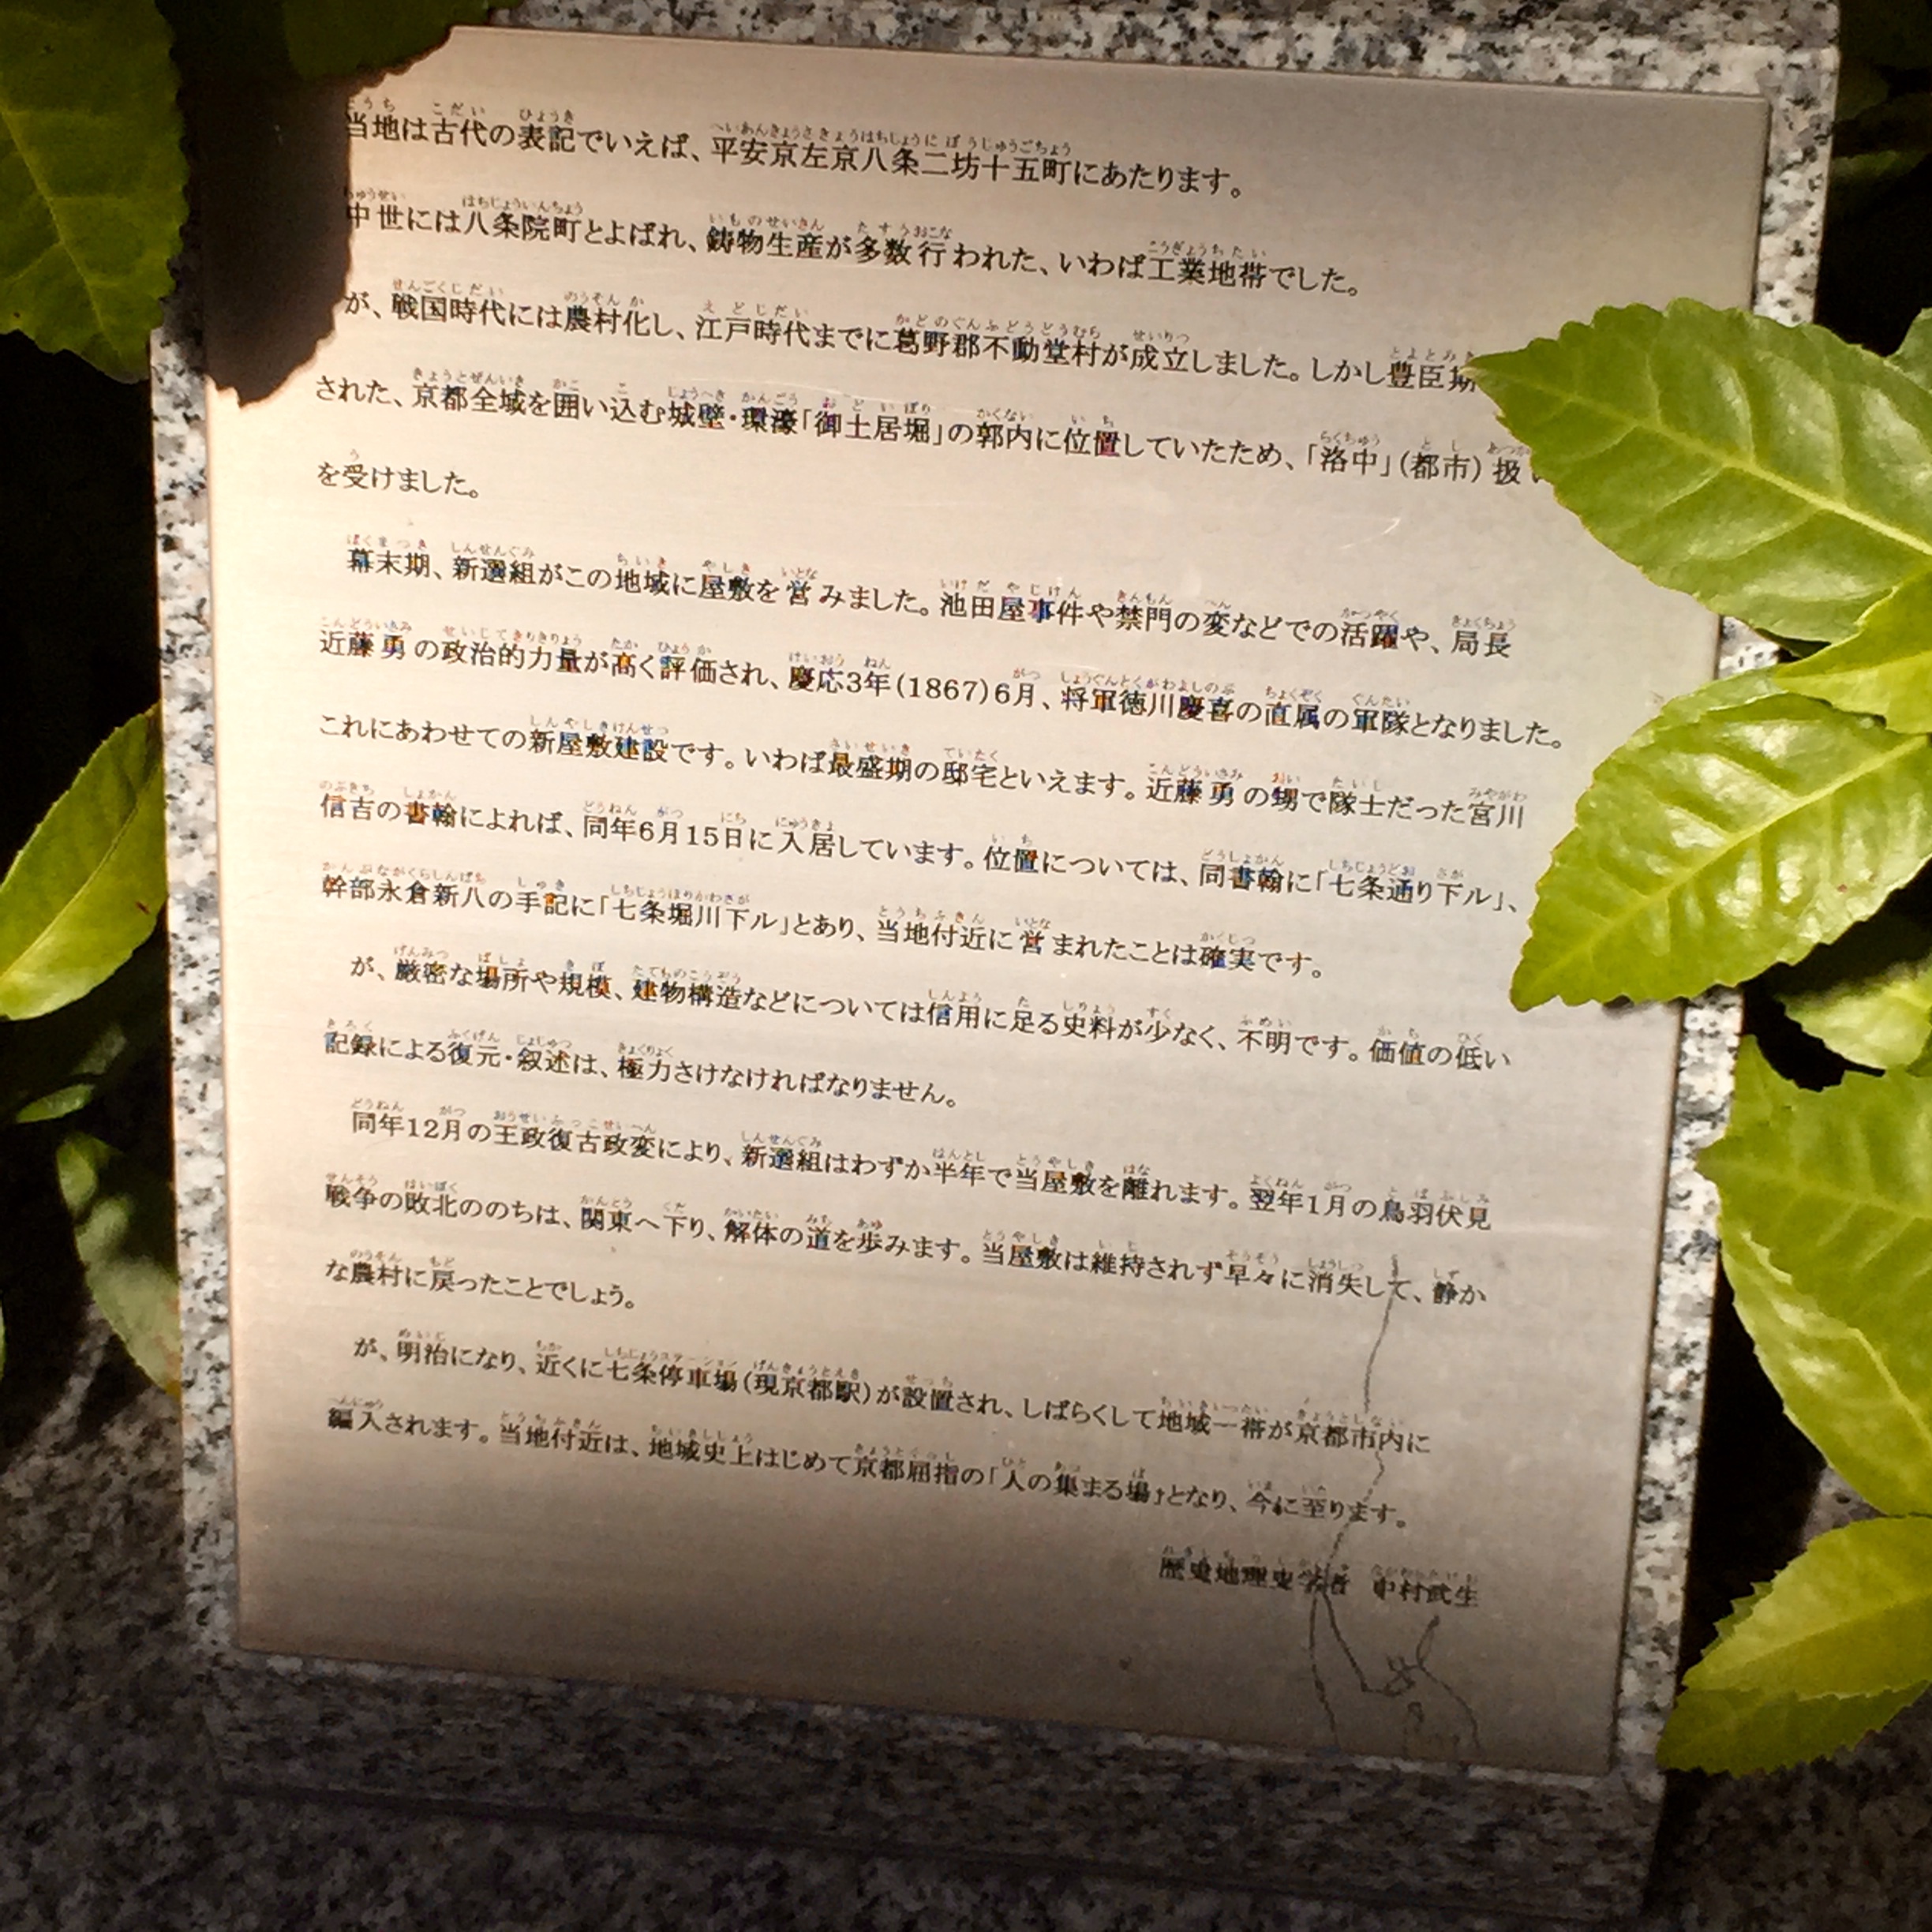 当地は古代の表記でいえば、平安京左京八条二坊十五町にあたります。
中世には八条院町とよばれ、鋳物生産が多数行われた、いわば工業地帯でした。
が、戦国時代には農村化し、江戸時代までに葛野郡不動堂村が成立しました。しかし豊臣期
された、京都全域を囲い込む城壁・環濠「御土居堀」の郭内に位置していたため、「洛中」(都市)扱い
を受けました。
幕末期、新選組がこの地域に屋敷を営みました。池田屋事件や禁門の変などでの活躍や、局長
近藤勇の政治的力量が高く評価され、慶応3年(1867)6月、将軍徳川慶喜の直属の軍隊となりました。
これにあわせての新屋敷建設です。いわば最盛期の邸宅といえます。近藤勇の甥で隊士だった宮川
信吉の書翰によれば、同年6月15日に入居しています。位置については、同書翰に「七条通り下ル」、
幹部永倉新八の手記に「七条堀川下ル」とあり、当地付近に営まれたことは確実です。
が、厳密な場所や規模、建物構造などについては信用に足る史料が少なく、不明です。価値の低い
記録による復元・叙述は、極力さけなければなりません。
同年12月の王政復古政変により、新選組はわずか半年で当屋敷を離れます。翌年1月の鳥羽伏見
戦争の敗北ののちは、関東へ下り、解体の道を歩みます。当屋敷は維持されず早々に消失して、静か
な農村に戻ったことでしょう。
が、明治になり、近くに七条停車場(現京都駅)が設置され、しばらくして地域一帯が京都市内に
編入されます。当地付近は、地域史上はじめて京都屈指の「人の集まる場」となり、今に至ります。
歴史地理史学者 中村武生